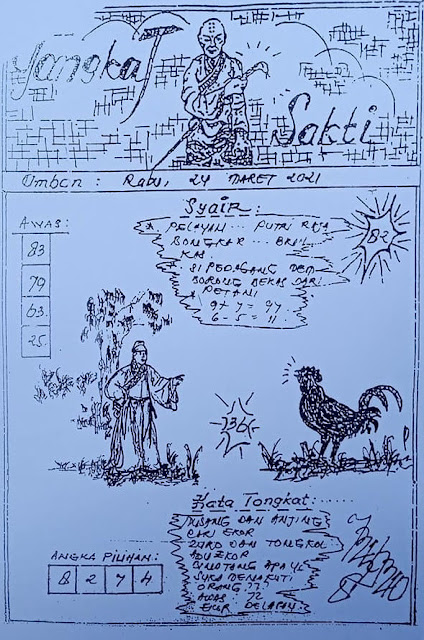 Jangka
Sakti
Omben : Rabu, 24 MARET 2021
AWAS:
83
79
63
25
Syair:
* PELAYAN ... PUTRI RAJA
BONGKAR ...
KAI
* SI PEDAGANG
BORONG BEKAS DARI
PETANI
9 + 7 = 97
6 - 5 = 11
82
36
Kata Tongkat:
MUSANG DAN ANJING
CARI EKOR
ZORO DAN TONGKOL
ADU EKOR
BINATANG APA YG
SUKA MENAKUTI
ORANG ??
AWAS 72
EKOR DELAPAN
ANGKA PILIHAN:
8 2 7 4